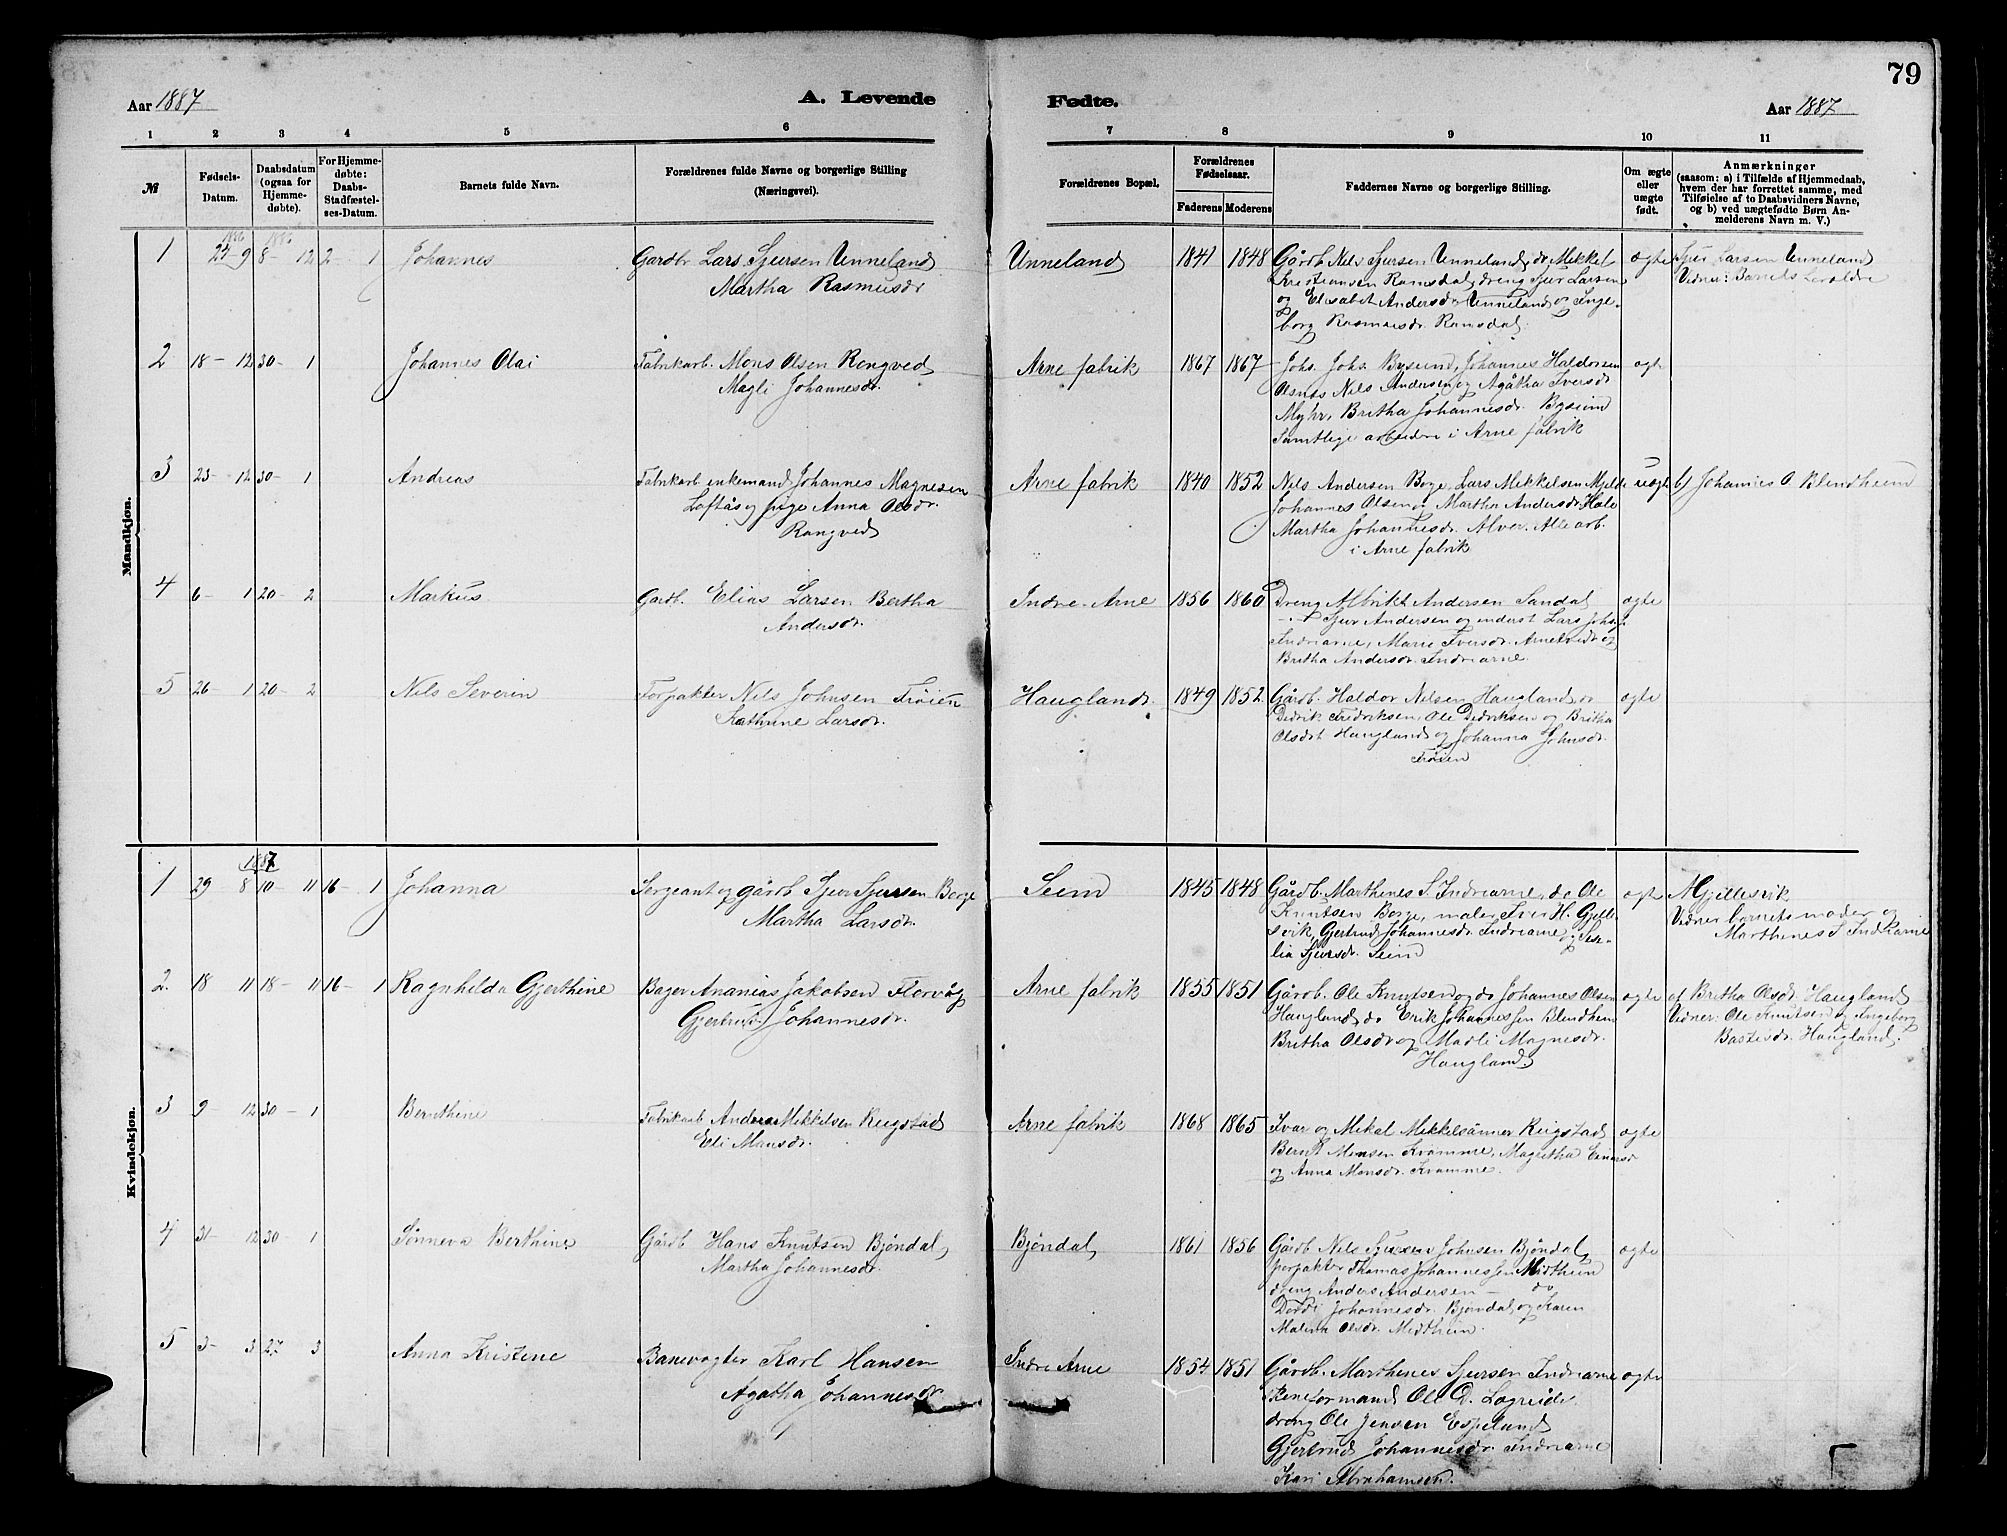 79
Aar 1887
A. Levende
Fødte.
Aar 1887
1 2 3 4 5 6 7 8 9 10 11
№
Fødsels-
Datum.
Daabsdatum
(ogsaa for
Hjemme-
døbte).
For Hjemme-
døbte:
Daabs-
Stadfæstel-
ses-Datum.
Barnets fulde Navn.
Forældrenes fulde Navne og borgerlige Stilling
(Næringsvei).
Forældrenes Bopæl.
Forældrenes
Fødselsaar.
Faderens Moderens
Faddernes Navne og borgerlige Stilling.
Om ægte
eller
uægte
født.
Anmærkninger
(saasom: a) i Tilfælde af Hjemmedaab,
hvem der har forrettet samme, med
Tilføielse af to Daabsvidners Navne,
og b) ved uægtefødte Børn An-
melderens Navn m. V.)
Mandkjøn.
1886 1886
1 25-9 8-12 2-1 Johannes
Gardbr Lars Sjursen Unneland
Martha Rasmusdr
Unneland 1841 1848
Gårdb. Nils Sjursen Unneland, do Mikkel
Kristiansen Ramsdal, dreng Sjur Larsen
og Elisabet Andersdr Unneland og Inge-
borg Rasmusdr. Ramsdal.
ægte
Sjur Larsen Unneland
Vidner: Barnets foreldre
2 18-12 30-1 Johannes Olai
Fabrikarb. Mons Olsen Rongved
Magli Johannesdr.
Arne fabrik 1867 1867
Johs. Johs. Byseim, Johannes Haldorsen
Osnes Nils Andersen og Agåtha Iversdr
Myhr, Britha Johannesdr. Byseim
Samtlige arbeidere i Arne fabrik
ægte
3 23-12 30-1 Andreas
Fabrikarb enkemand Johannes Magnesen
Loftås og pige Anna Olsdr.
Rongved
Arne fabrik 1840 1852
Nils Andersen Borge, Lars Mikkelsen Mjelde
Johannes Olsen og Martha Andersdr Hole
Martha Johannesdr. Alver. Alle arb.
i Arne fabrik
uægte
b) Johannes O. Blendheim
4 6-1 20-2 Markus
Gardb. Elias Larsen Bertha
Andersdr.
Indre-Arne 1856 1860
Dreng Albrikt Andersen Sandal
Sjur Andersen og inderst Lars Johs.
Indriarne, Marie Iversdr. Arnetveidt og
Britha Andersdr. Indriarne
ægte
5 26-1 20-2 Nils Severin
Forpakter Nils Johnsen Frøien
Kathrine Larsdr.
Haugland 1849 1852
Gårdb. Haldor Nilsen Haugland, do
Didrik Fredriksen, Ole Didriksen og Britha
Olsdrt Haugland og Johanna Johnsdr.
Frøien
ægte
Kvindekjøn.
1887
1 29 8 10-11 16-1 Johanna
Sergeant og gårdb Sjur Sjursen Borge
Martha Larsdr.
Seim 1845 1848
Gårdb. Marthines S. Indriarne, do Ole
Knutsen Borge, maler Iver H. Gjelle-
svik, Gjertrud Johannesdr. Indriarne og Sese-
lia Sjursdr. Seim
ægte
A Gjellesvik
Vidner barnets moder og
Marthines S Indriarne
2. 18 11 18-11 16-1 Ragnhilda Gjerthine
Bager Ananias Jakobsen Florvåg
Gjertrud Johannesdr.
Arne fabrik 1855 1851
Gårdb. Ole Knutsen og do Johannes Olsen
Haugland, do Erik Johannessen Blendheim
Britha Olsdr og Madli Magnesdr.
Haugland
ægte
af Britha Olsdr. Haugland
Vidner: Ole Knutsen og Ingeborg
Bastisdr. Haugland.
3 9-12 30-1 Bernthine
Fabrikarb Anders Mikkelsen Reigstad
Eli Monsdr.
Arne fabrik 1868 1865
Ivar og Mikal Mikkelsønner Reigstad
Bernt Monsen Kvamme, Magretha Einarsdr
og Anna Monsdr. Kvamme.
ægte
4 31-12 30 1 Sønneva Berthine
Gårdb Hans Knutsen Bjøndal
Martha Johannesdr.
Bjøndal 1861 1856
Gårdb. Nils Johnsen Bjøndal
forpakter Thomas Johannessen Midtheim
dreng Anders Andersen – do
Dordi Johannesdr. Bjøndal og Karen
Malena Olsdr. Midtheim.
ægte
5 3-3 27 3 Anna Kristine
Banevogter Karl Hansen
Agatha Johannesdr
Indre Arne 1854 1851
Gårdb. Marthines Sjursen Indriarne
Baneformand Ole D. Lægreide
dreng Ole Jensen Espeland
Gjertrud Johannesdr. Indriarne
Kari Abrahamsen.
ægte